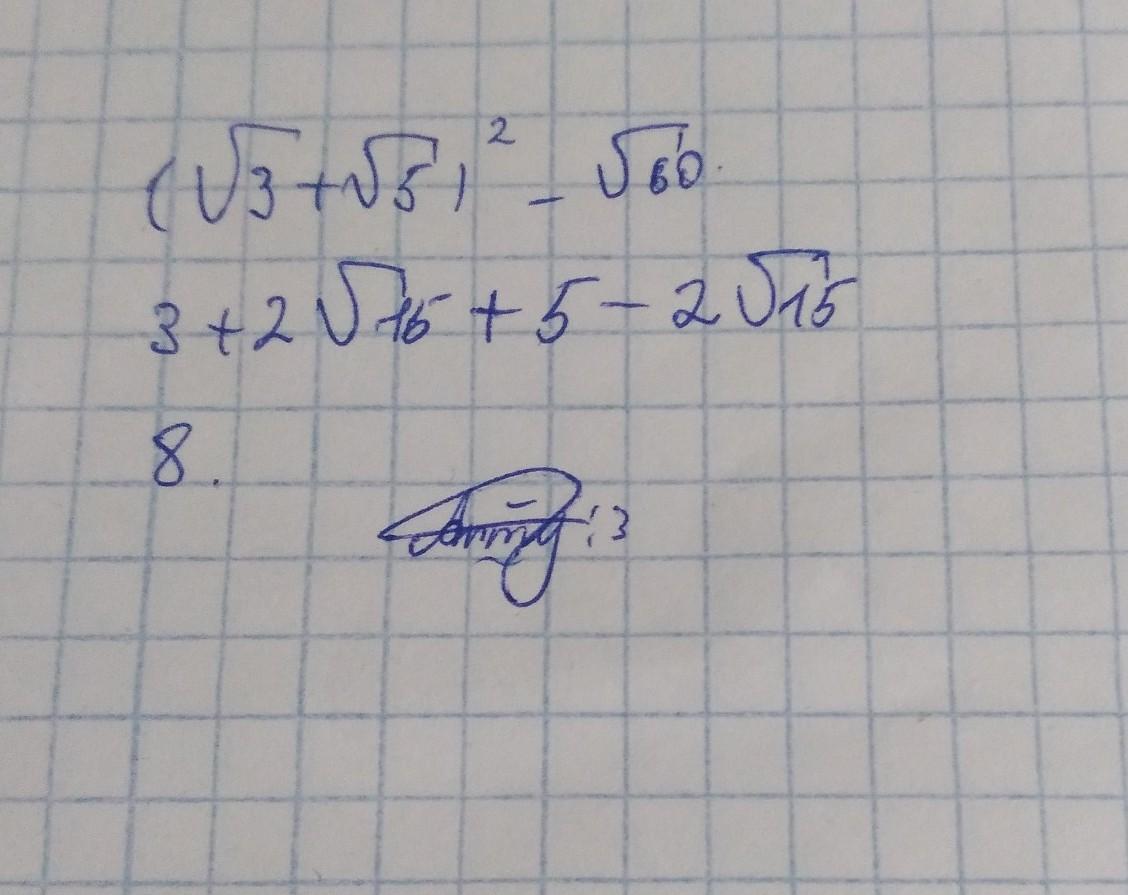 (√3+√5)² - √60.
3+2√15+5-2√15
8.
:3